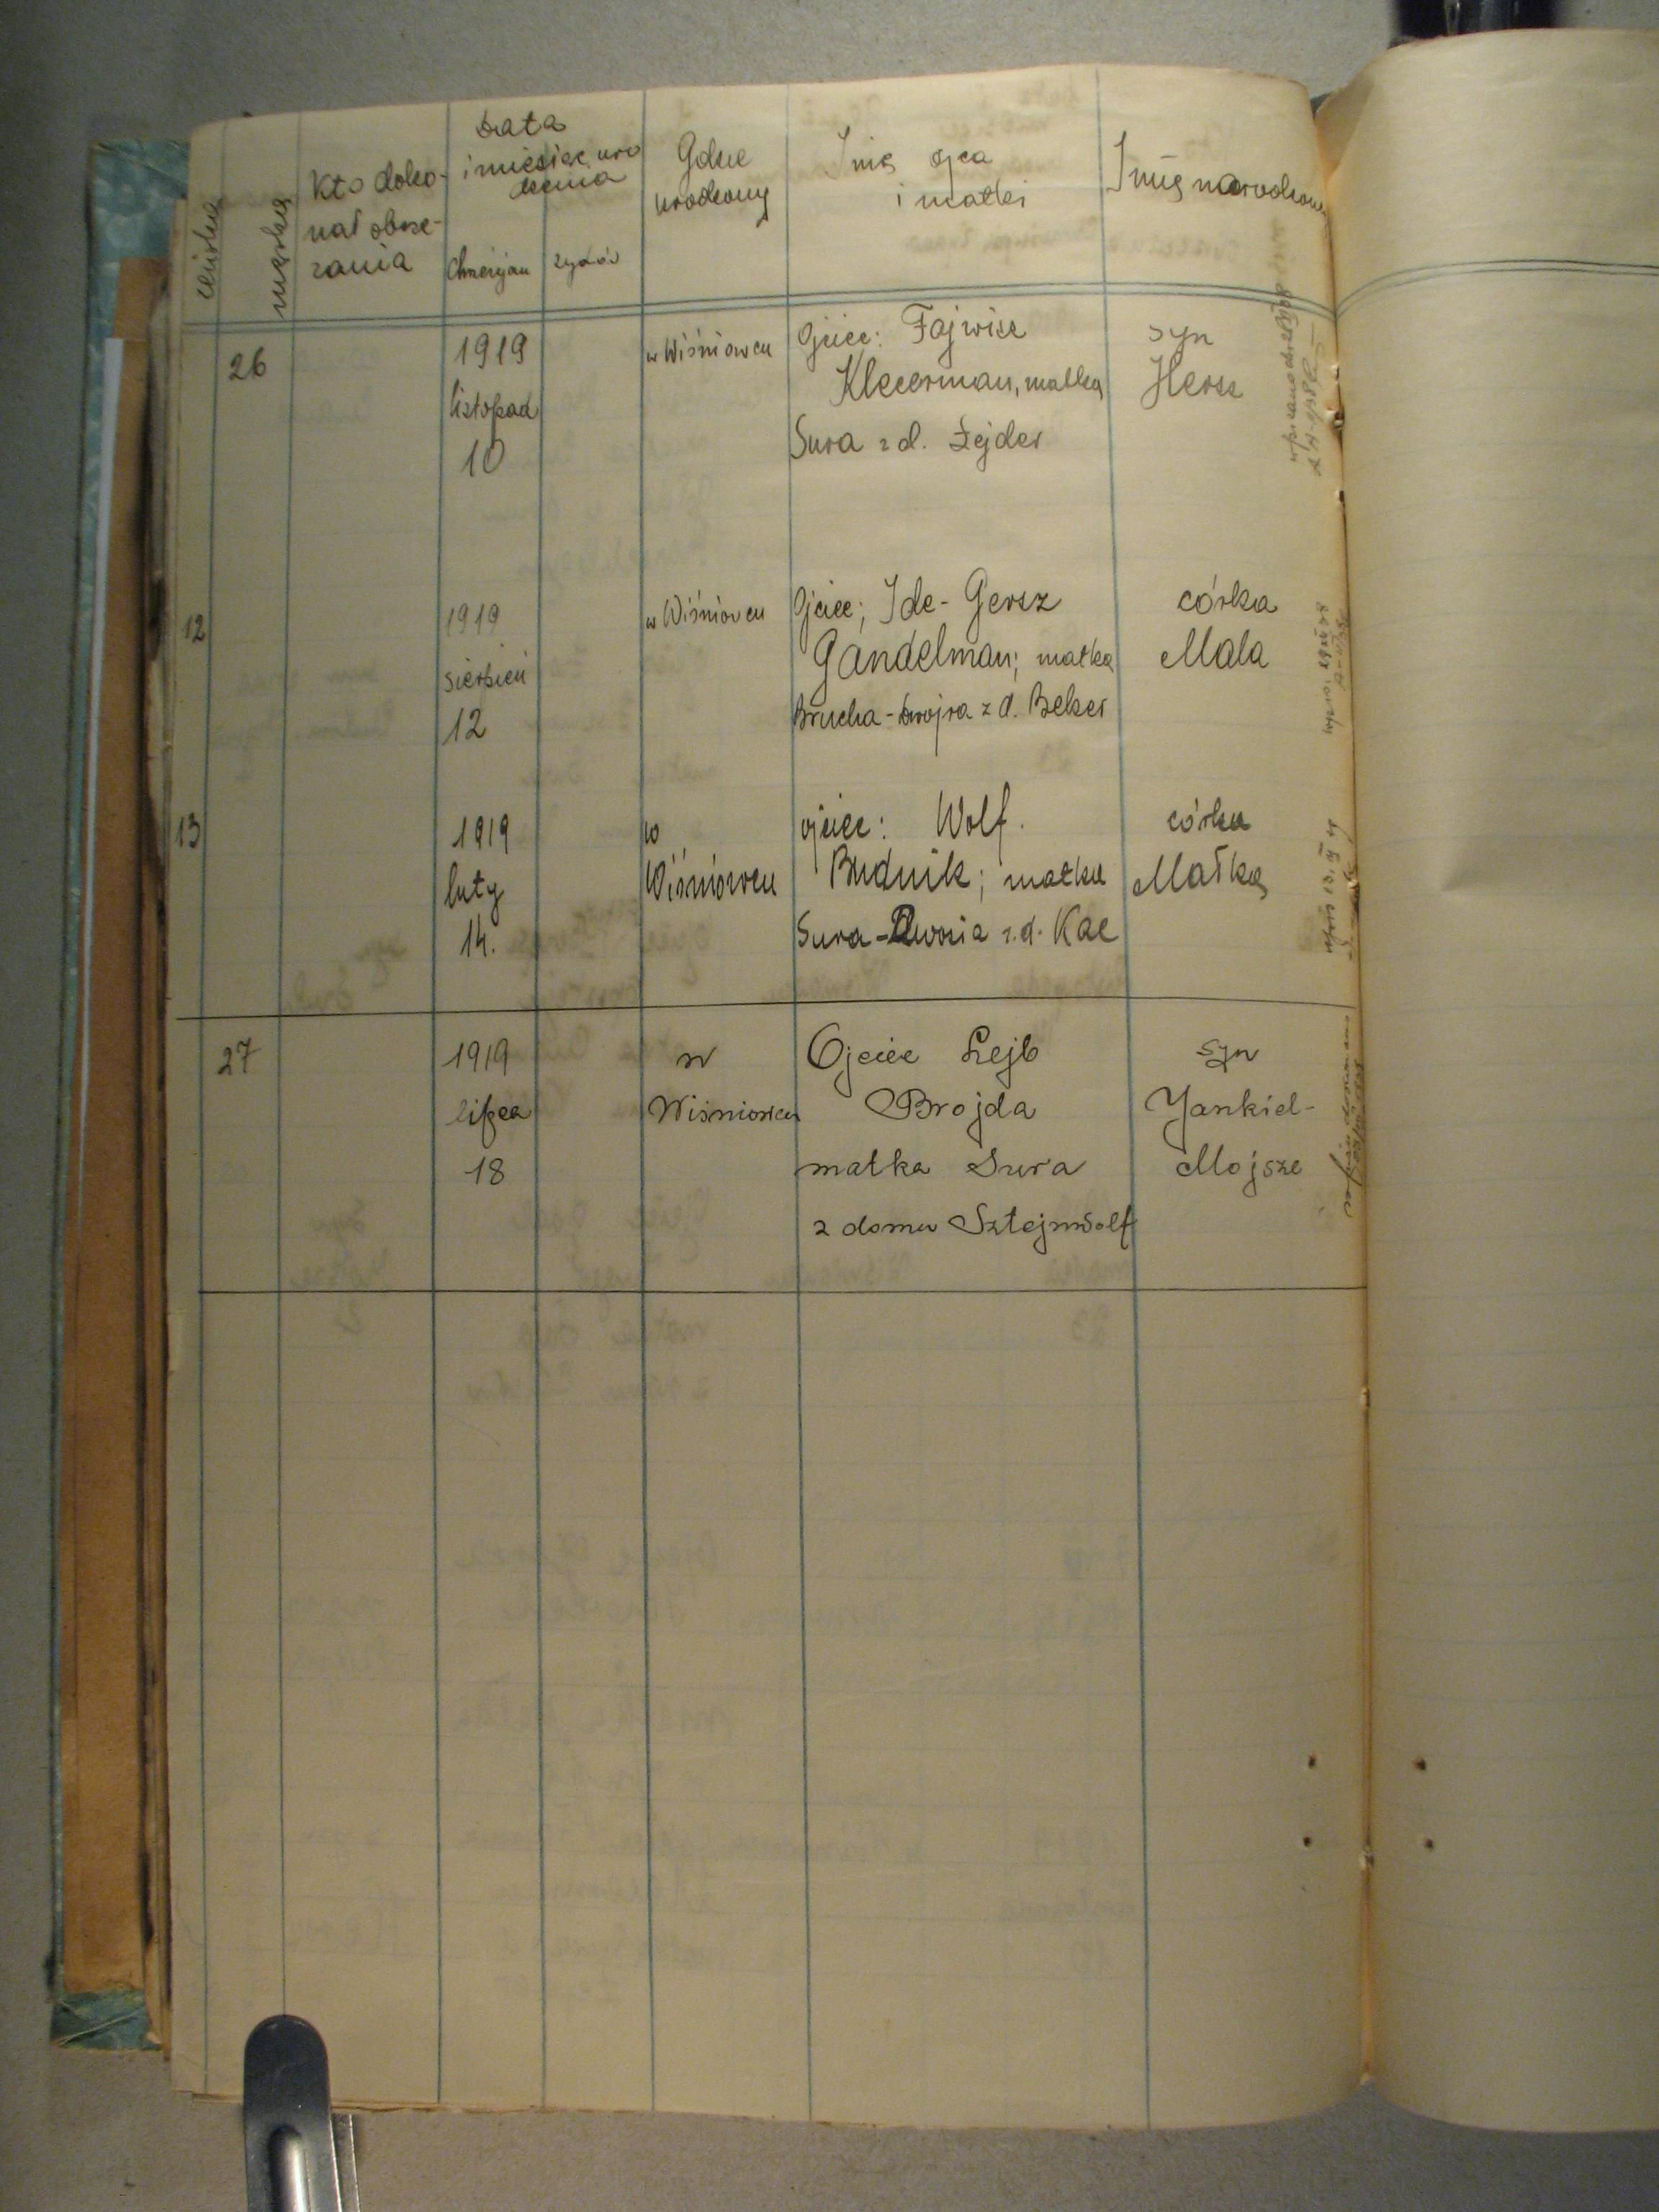 żeńska
męska
Kto doko-
nał obrze-
zania
Data
i miesiąc uro
dzenia
Chrześcijan
żydów
Gdzie
urodzony
Imię ojca
i matki
Imię narodzon
26
1919
listopad
10
w Wiśniowcu
Ojciec: Fajwisz
Klecerman, matka
Sura z d. Lejder
syn
Hersz
12
1919
sierpień
12
w Wiśniowcu
Ojciec; Ide-Gersz
Gandelman; matka
Brucha-Dwojra z d. Beker
córka
Mala
13
1919
luty
14.
w
Wiśniowcu
ojciec: Wolf.
Budnik; matka
Sura-Dwosia z.d. Kac
córka
Małka
27
1919
lipca
18
w
Wiśniowcu
Ojciec Lejb
Brojda
matka Sura
z domu Sztejnwolf
syn
Yankiel-
Mojsze